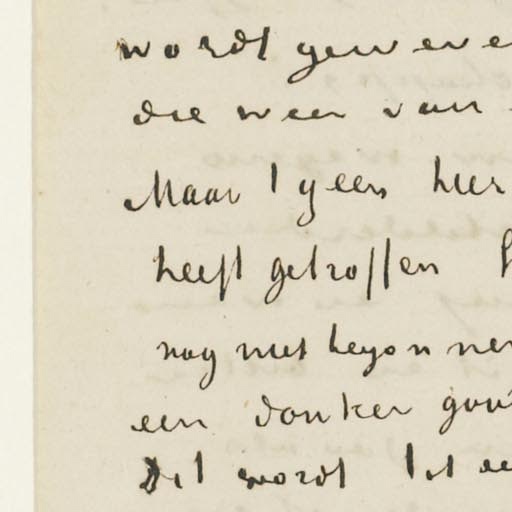 wordt geweve
die weer van
Maar t geen hier
heeft getroffen
nog niet begonnen
een donker gou
Dit wordt tot ee